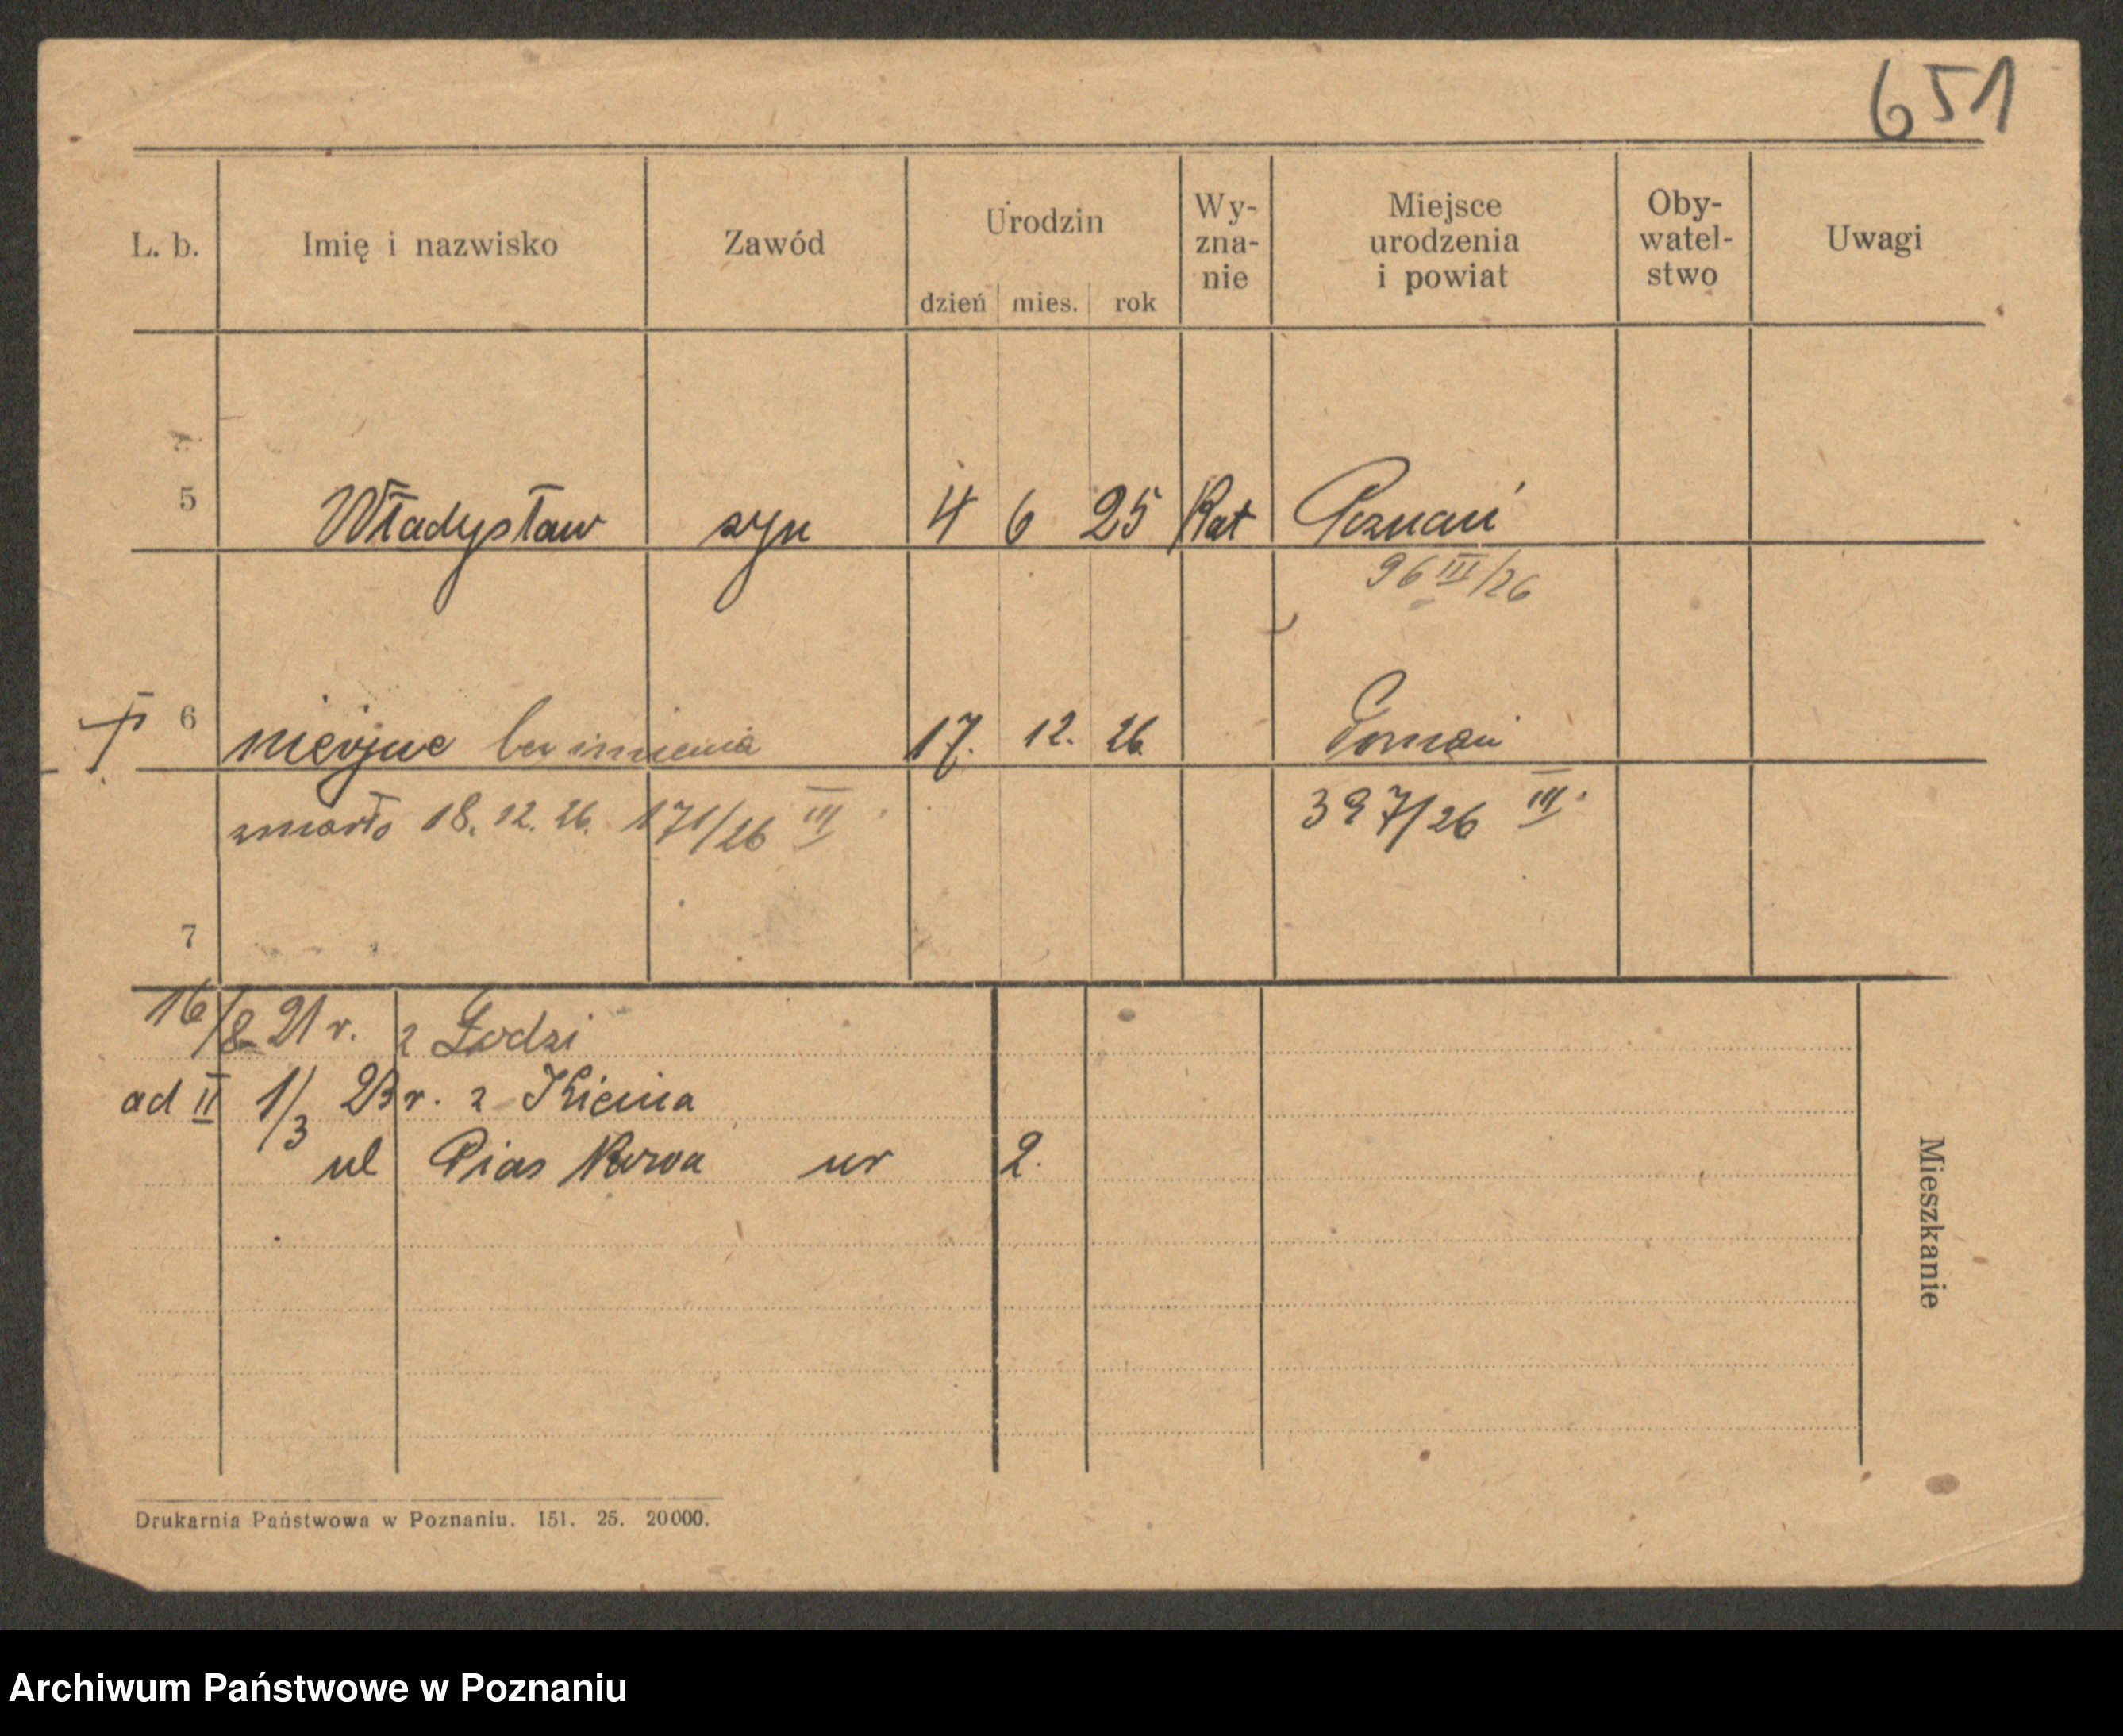 651
L. b. Imię i nazwisko Zawód Urodzin dzień mies. rok Wy-zna-nie Miejsce urodzenia i powiat Oby-watel-stwo Uwagi
5 Władysław syn 4 6 25 Kat Poznań
96 III/26
6 bez imienia 17. 12. 26. Poznań
zmarło 18. 12. 26. 171/26 III 397/26 III.
7
16/8 21 r. z Łodzi
ad II 1/3 23 r. z Kicina
ul Pias Kowa nr 2.
Mieszkanie
Drukarnia Państwowa w Poznaniu. 151. 25. 20000.
Archiwum Państwowe w Poznaniu